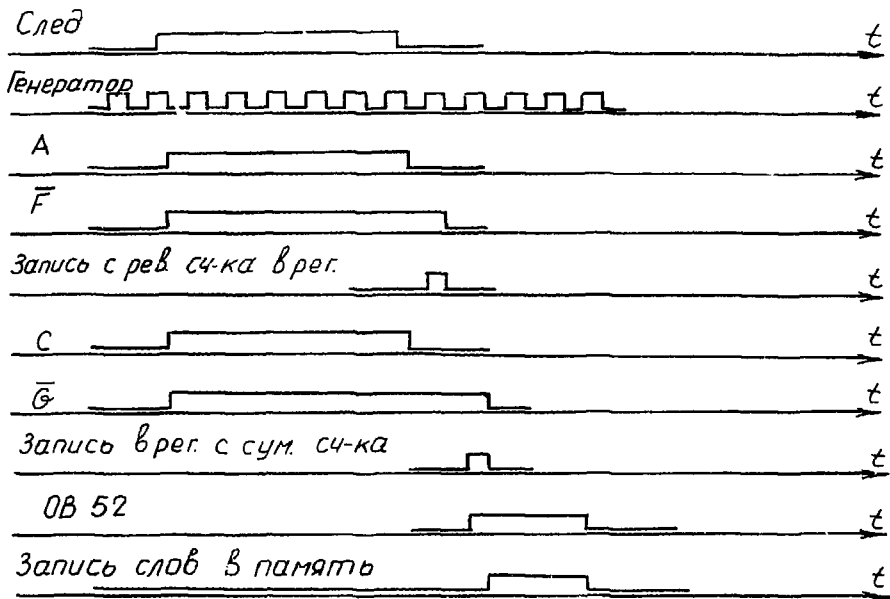 След
t
Генератор
t
A
t
F̅
t
Запись с рев. сч-ка в рег.
t
C
t
G̅
t
Запись в рег. с сум. сч-ка
t
ОВ 52
t
Запись слов в память
t